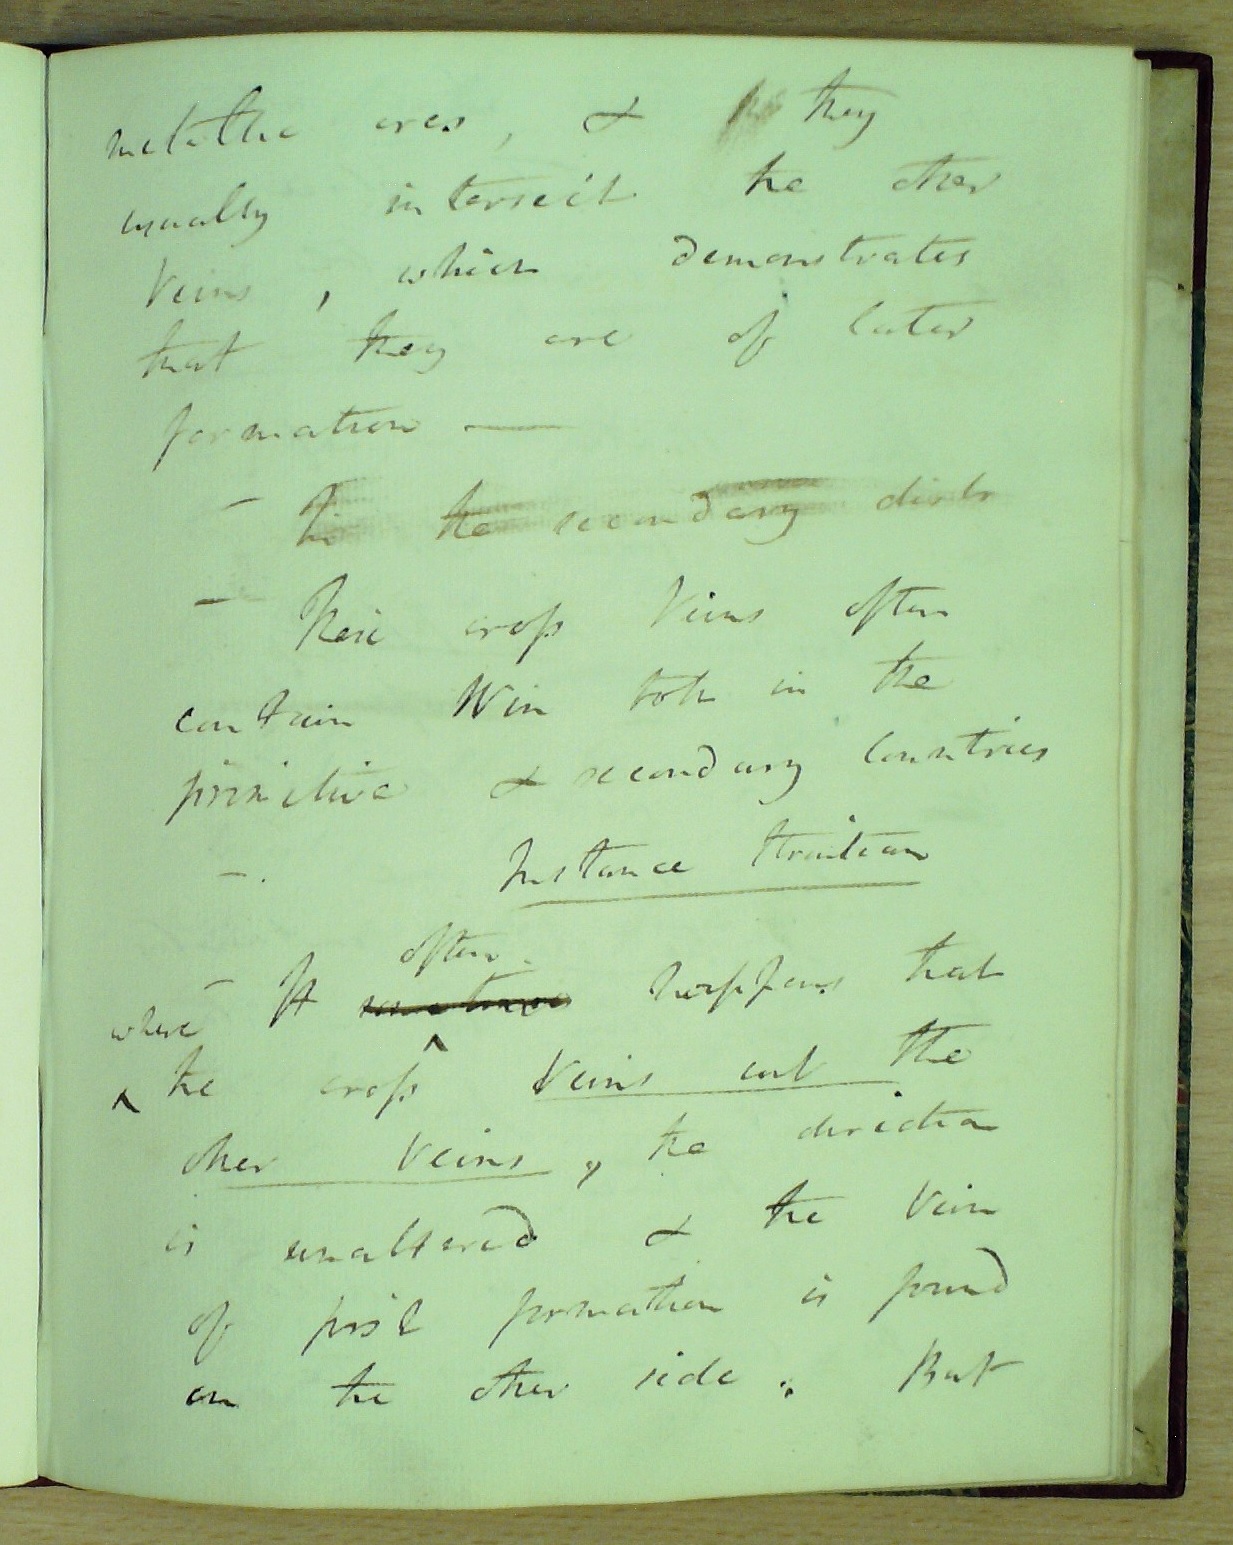 metallic ores, & they
usually intersect the other
Veins, which demonstrates
that they are of later
formation —
— In the secondary distr
— These cross Veins often
contain Tin both in the
primitive & secondary Countries
—. Instance
often
— It sometimes happens that
where
the cross Veins cut the
other Veins, the direction
is unaltered & the Vein
of first formation is found
on the other side. But